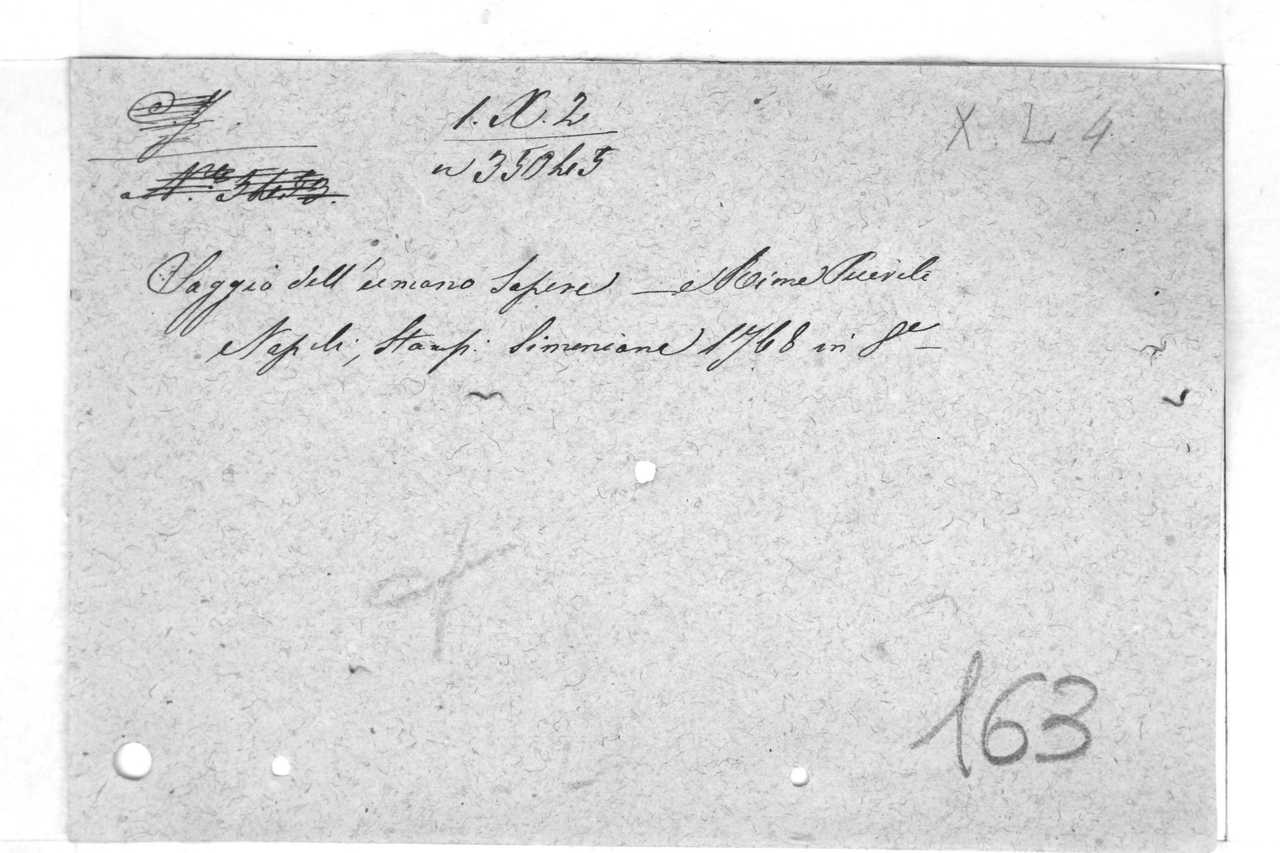 1. X. 2
X. L 4
n 350 h 5
Saggio dell'umano Sapere — Rime Puerili
Napoli, Stamp. Simoniana 1768 in 8°
163